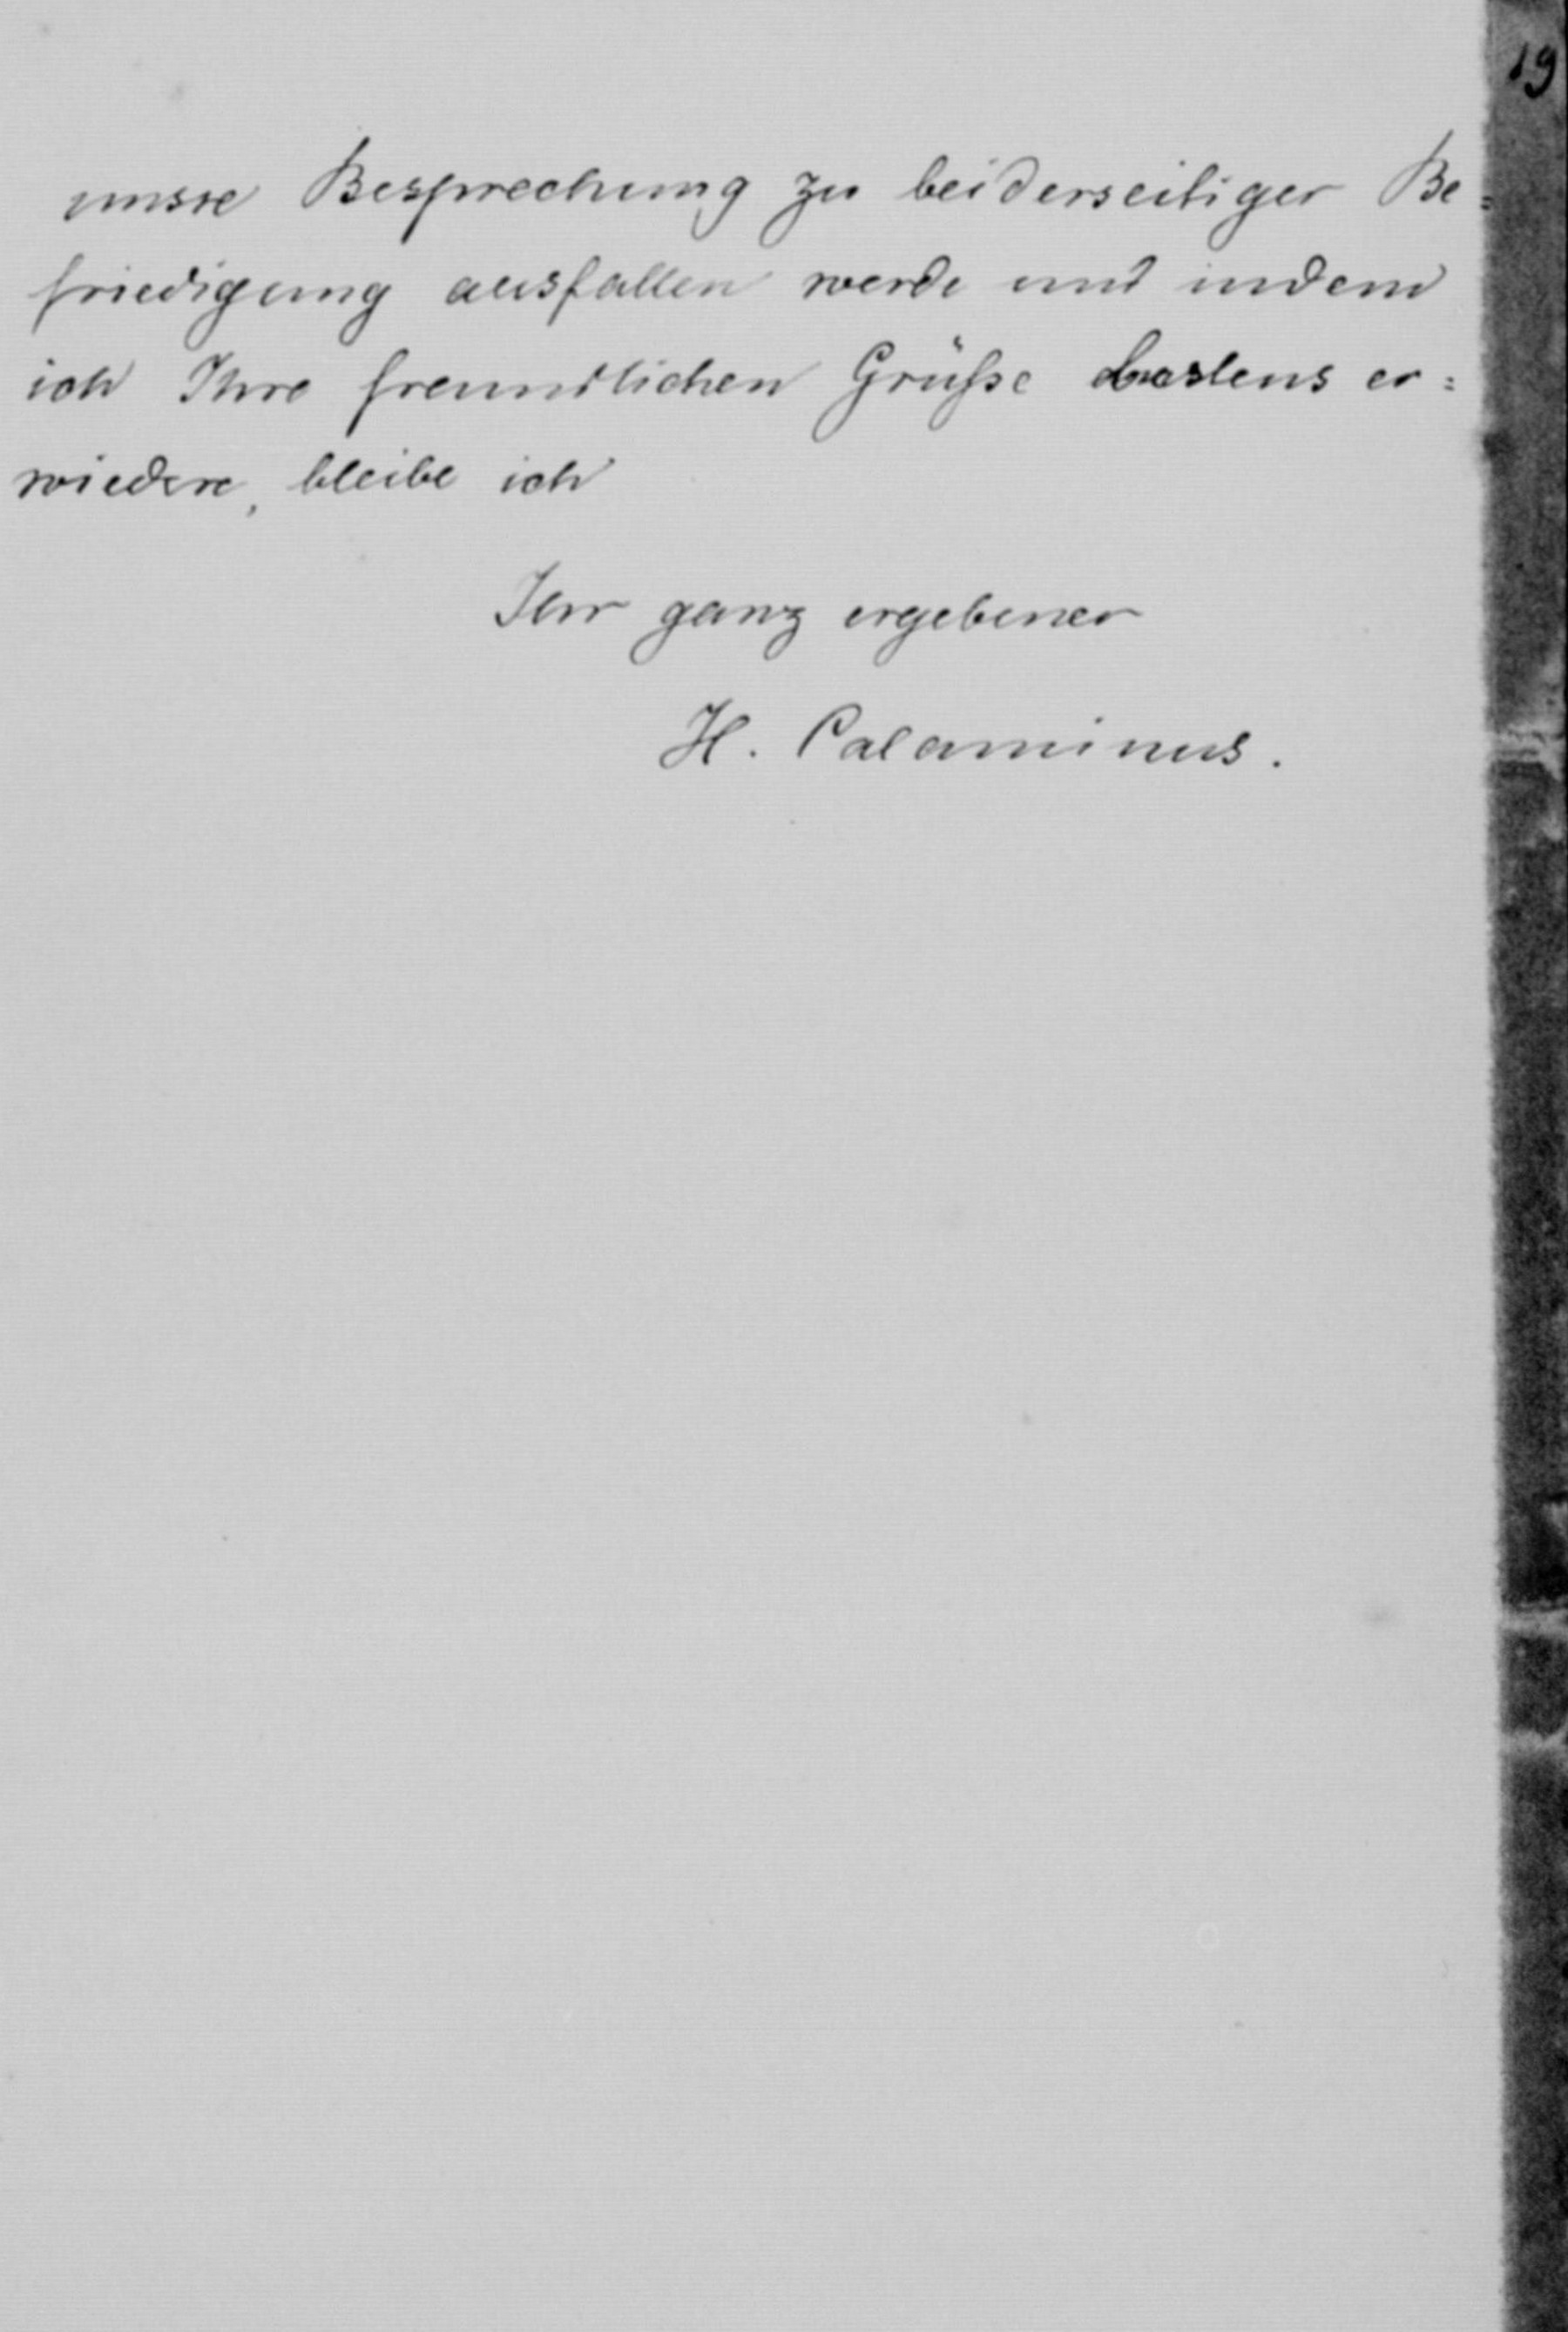 19
unsre Besprechung zu beiderseitiger Be=
friedigung ausfallen werde und indem
ich Ihre freundlichen Grüße bestens er=
wiedere, bleibe ich
Ihr ganz ergebener
H. Calaminus.